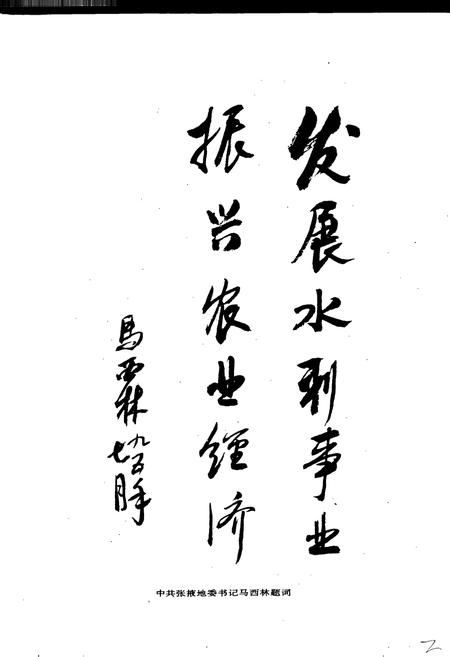 发展水利事业
振兴农业经济
马西林
九五年
七月
中共张掖地委书记马西林题词
2